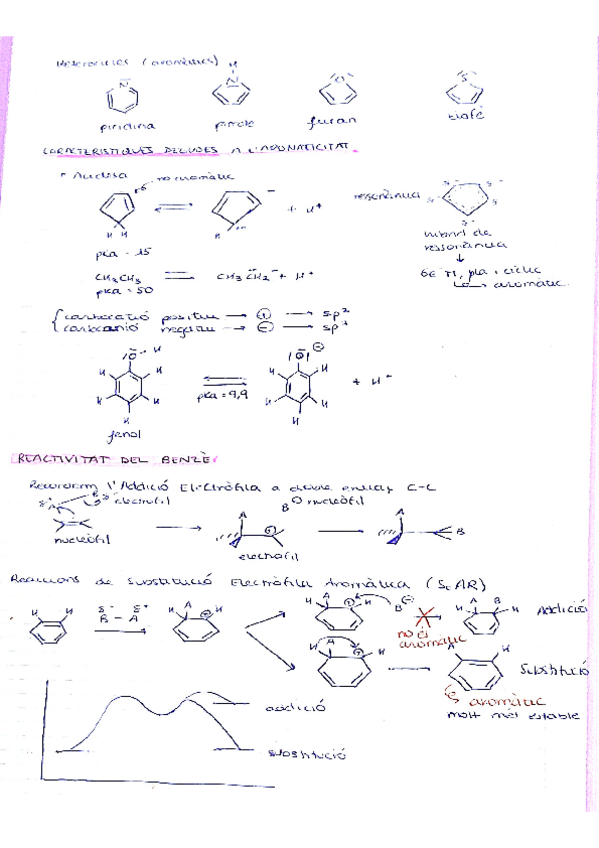 Heterocicles (aromàtics)
N
H
N
O
S
piridina pirrole furan tiofè
CARACTERÍSTIQUES DEGUDES A L'AROMATICITAT.
* Acidesa no aromàtic
H H
H
+ H⁺
ressonància
δ⁻ δ⁻ δ⁻ δ⁻ δ⁻
pKa = 15
híbrid de
ressonància
CH₃CH₃ ⇌ CH₃CH₂⁻ + H⁺
pKa = 50
6e⁻ π, pla i cíclic
→ aromàtic.
carbocatió positiu → ⊕ → sp²
carboanió negatiu → ⊖ →
O H
H H H H H
pKa = 9,9
O ⊖
H H H H H
+ H⁺
fenol
REACTIVITAT DEL BENZÈ
Recordem l'Addició Electròfila a dobles enllaç C-C
δ⁺ A B δ⁻ electròfil
B⊖ nucleòfil
A ⊕
A B
nucleòfil
electròfil
Reaccions de Substitució Electròfila Aromàtica (SEAR)
H H
δ⁻ δ⁺
B – A
H A ⊕ H
H A ⊕ H B⊖
H A B H
Addició
no és
aromàtic
H A ⊕ H
A H
Substitució
aromàtic
molt més estable
addició
substitució